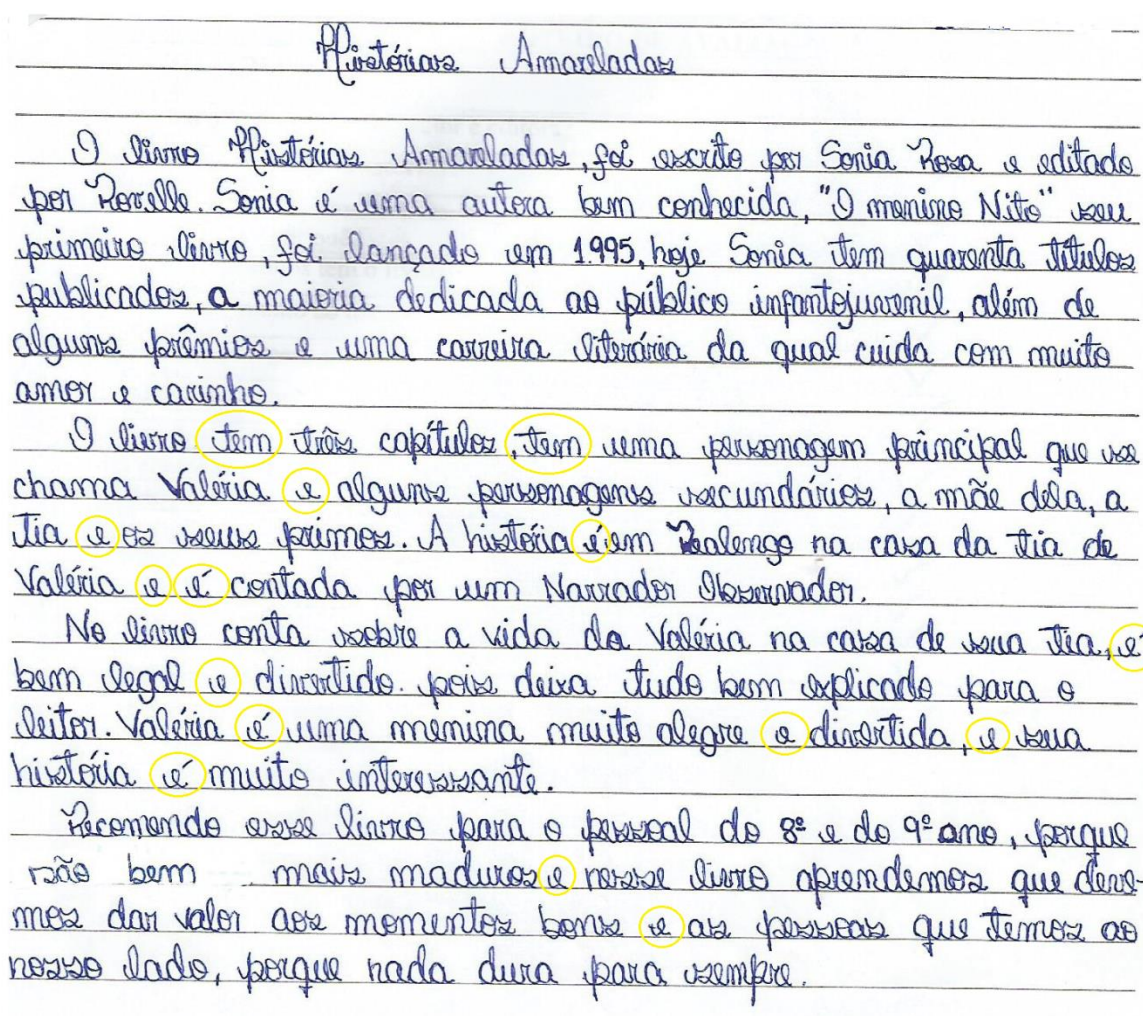 Histórias Amareladas
O livro Histórias Amareladas, foi escrito por Sonia Rosa e editado
por Rovelle. Sonia é uma autora bem conhecida, "O menino Nito" seu
primeiro livro, foi lançado em 1.995, hoje Sonia tem quarenta títulos
publicados, a maioria dedicada ao público infantojuvenil, além de
alguns prêmios e uma carreira literária da qual cuida com muito
amor e carinho.
O livro tem três capítulos, tem uma personagem principal que se
chama Valéria e alguns personagens secundários, a mãe dela, a
tia e os seus primos. A história é em Realengo na casa da tia de
Valéria e é contada por um Narrador Observador.
No livro conta sobre a vida da Valéria na casa de sua tia, e
bem legal e divertido. pois deixa tudo bem explicado para o
leitor. Valéria é uma menina muito alegre e divertida, e sua
história é muito interessante.
Recomendo esse livro para o pessoal do 8º e do 9º ano, porque
são bem mais maduros e nesse livro aprendemos que deve-
mos dar valor aos momentos bons e as pessoas que temos ao
nosso lado, porque nada dura para sempre.